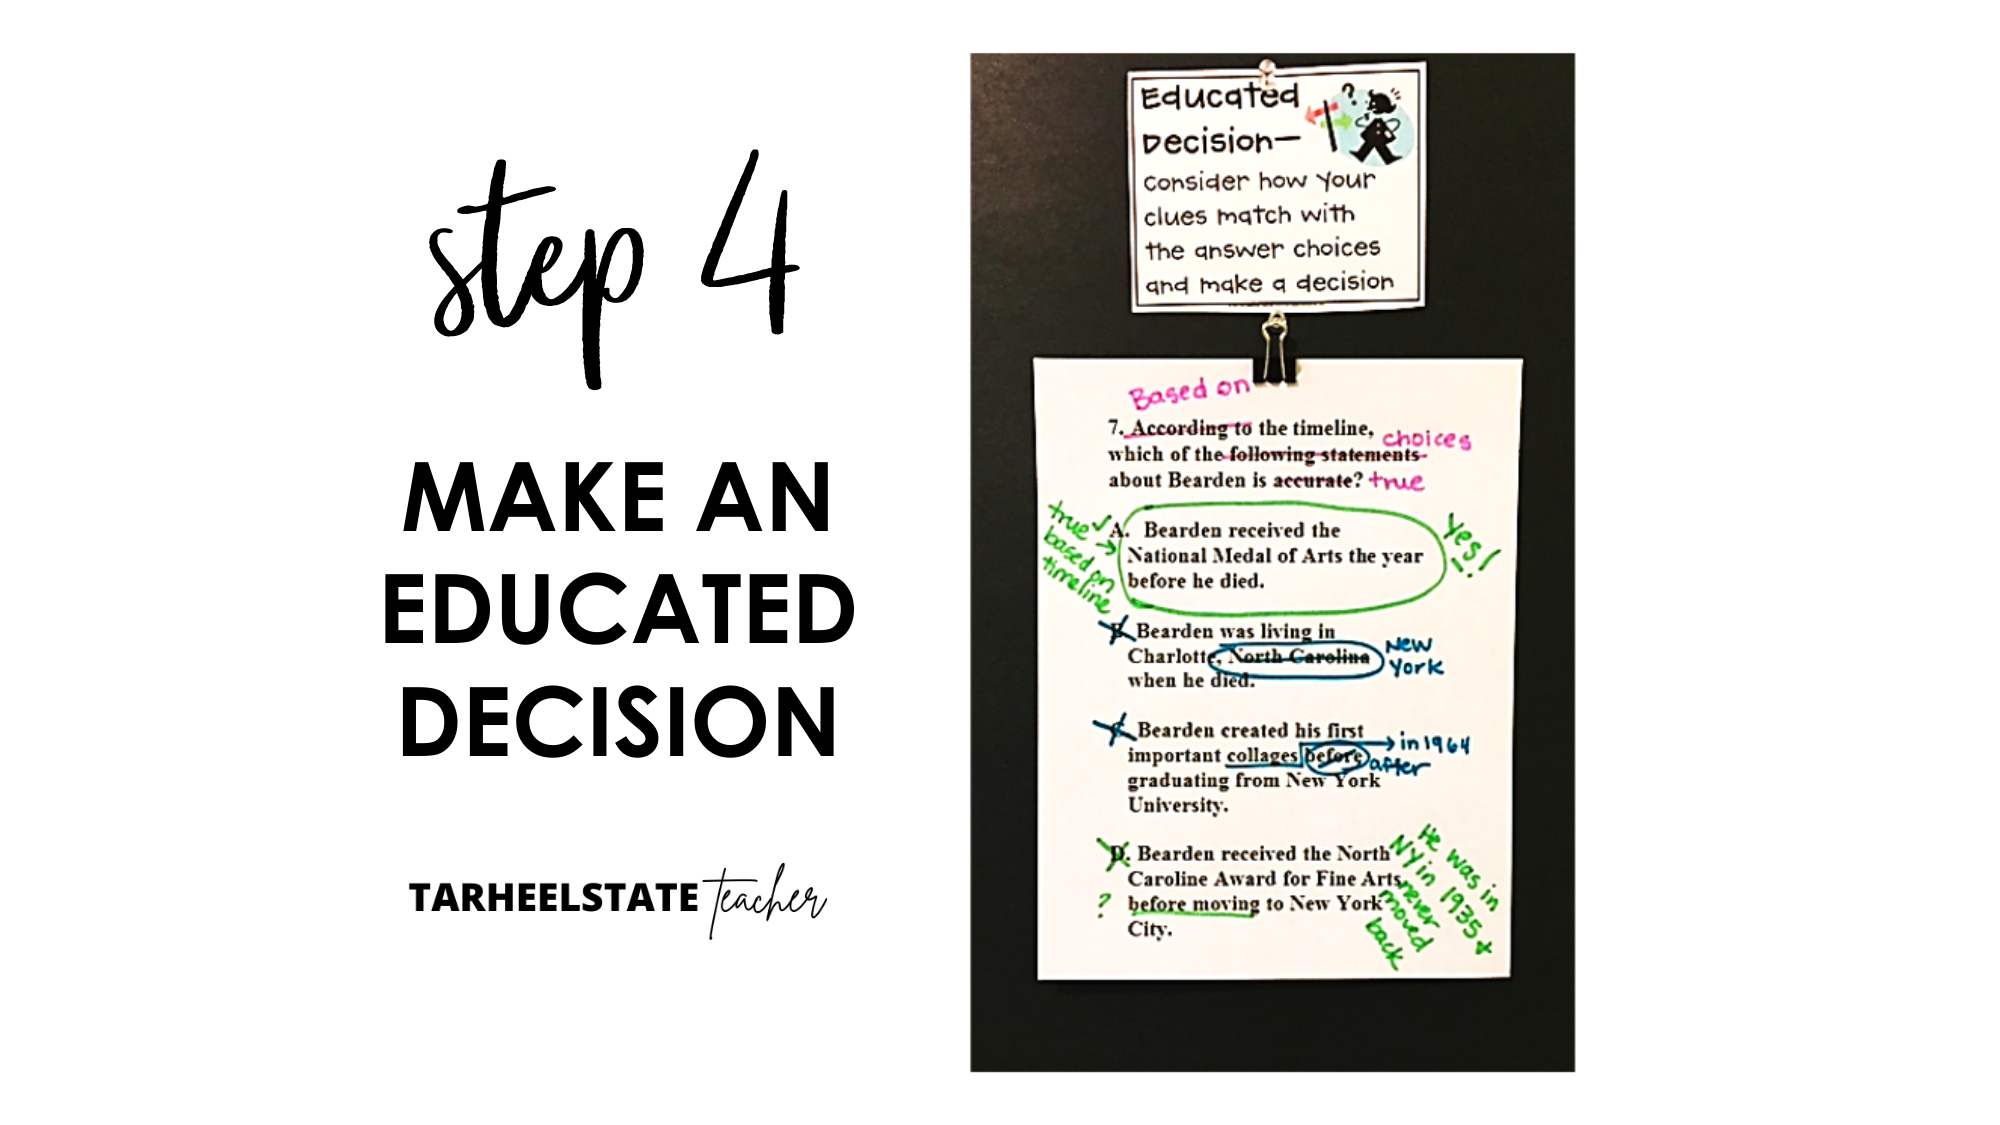 step 4
MAKE AN
EDUCATED
DECISION
TARHEELSTATE teacher
Educated
Decision—
consider how your
clues match with
the answer choices
and make a decision
Based on
7. According to the timeline,
choices
which of the following statements
about Bearden is accurate? true
true ✓
based on
timeline
A. Bearden received the
National Medal of Arts the year
before he died.
Yes!
B. Bearden was living in
Charlotte, North Carolina
when he died.
New
York
C. Bearden created his first
important collages before
in 1964
after
graduating from New York
University.
D. Bearden received the North
Caroline Award for Fine Arts
? before moving to New York
City.
He was in
NY in 1935 &
never
moved
back